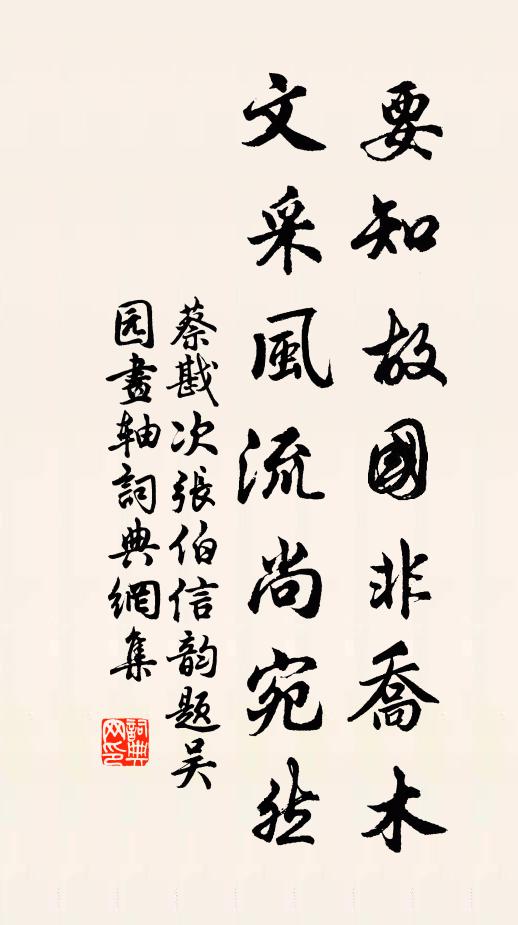 要知故國非喬木
文采風流尚宛然
蔡戡次張伯信韵题吴
园畫軸詞典網集
詞典
网印